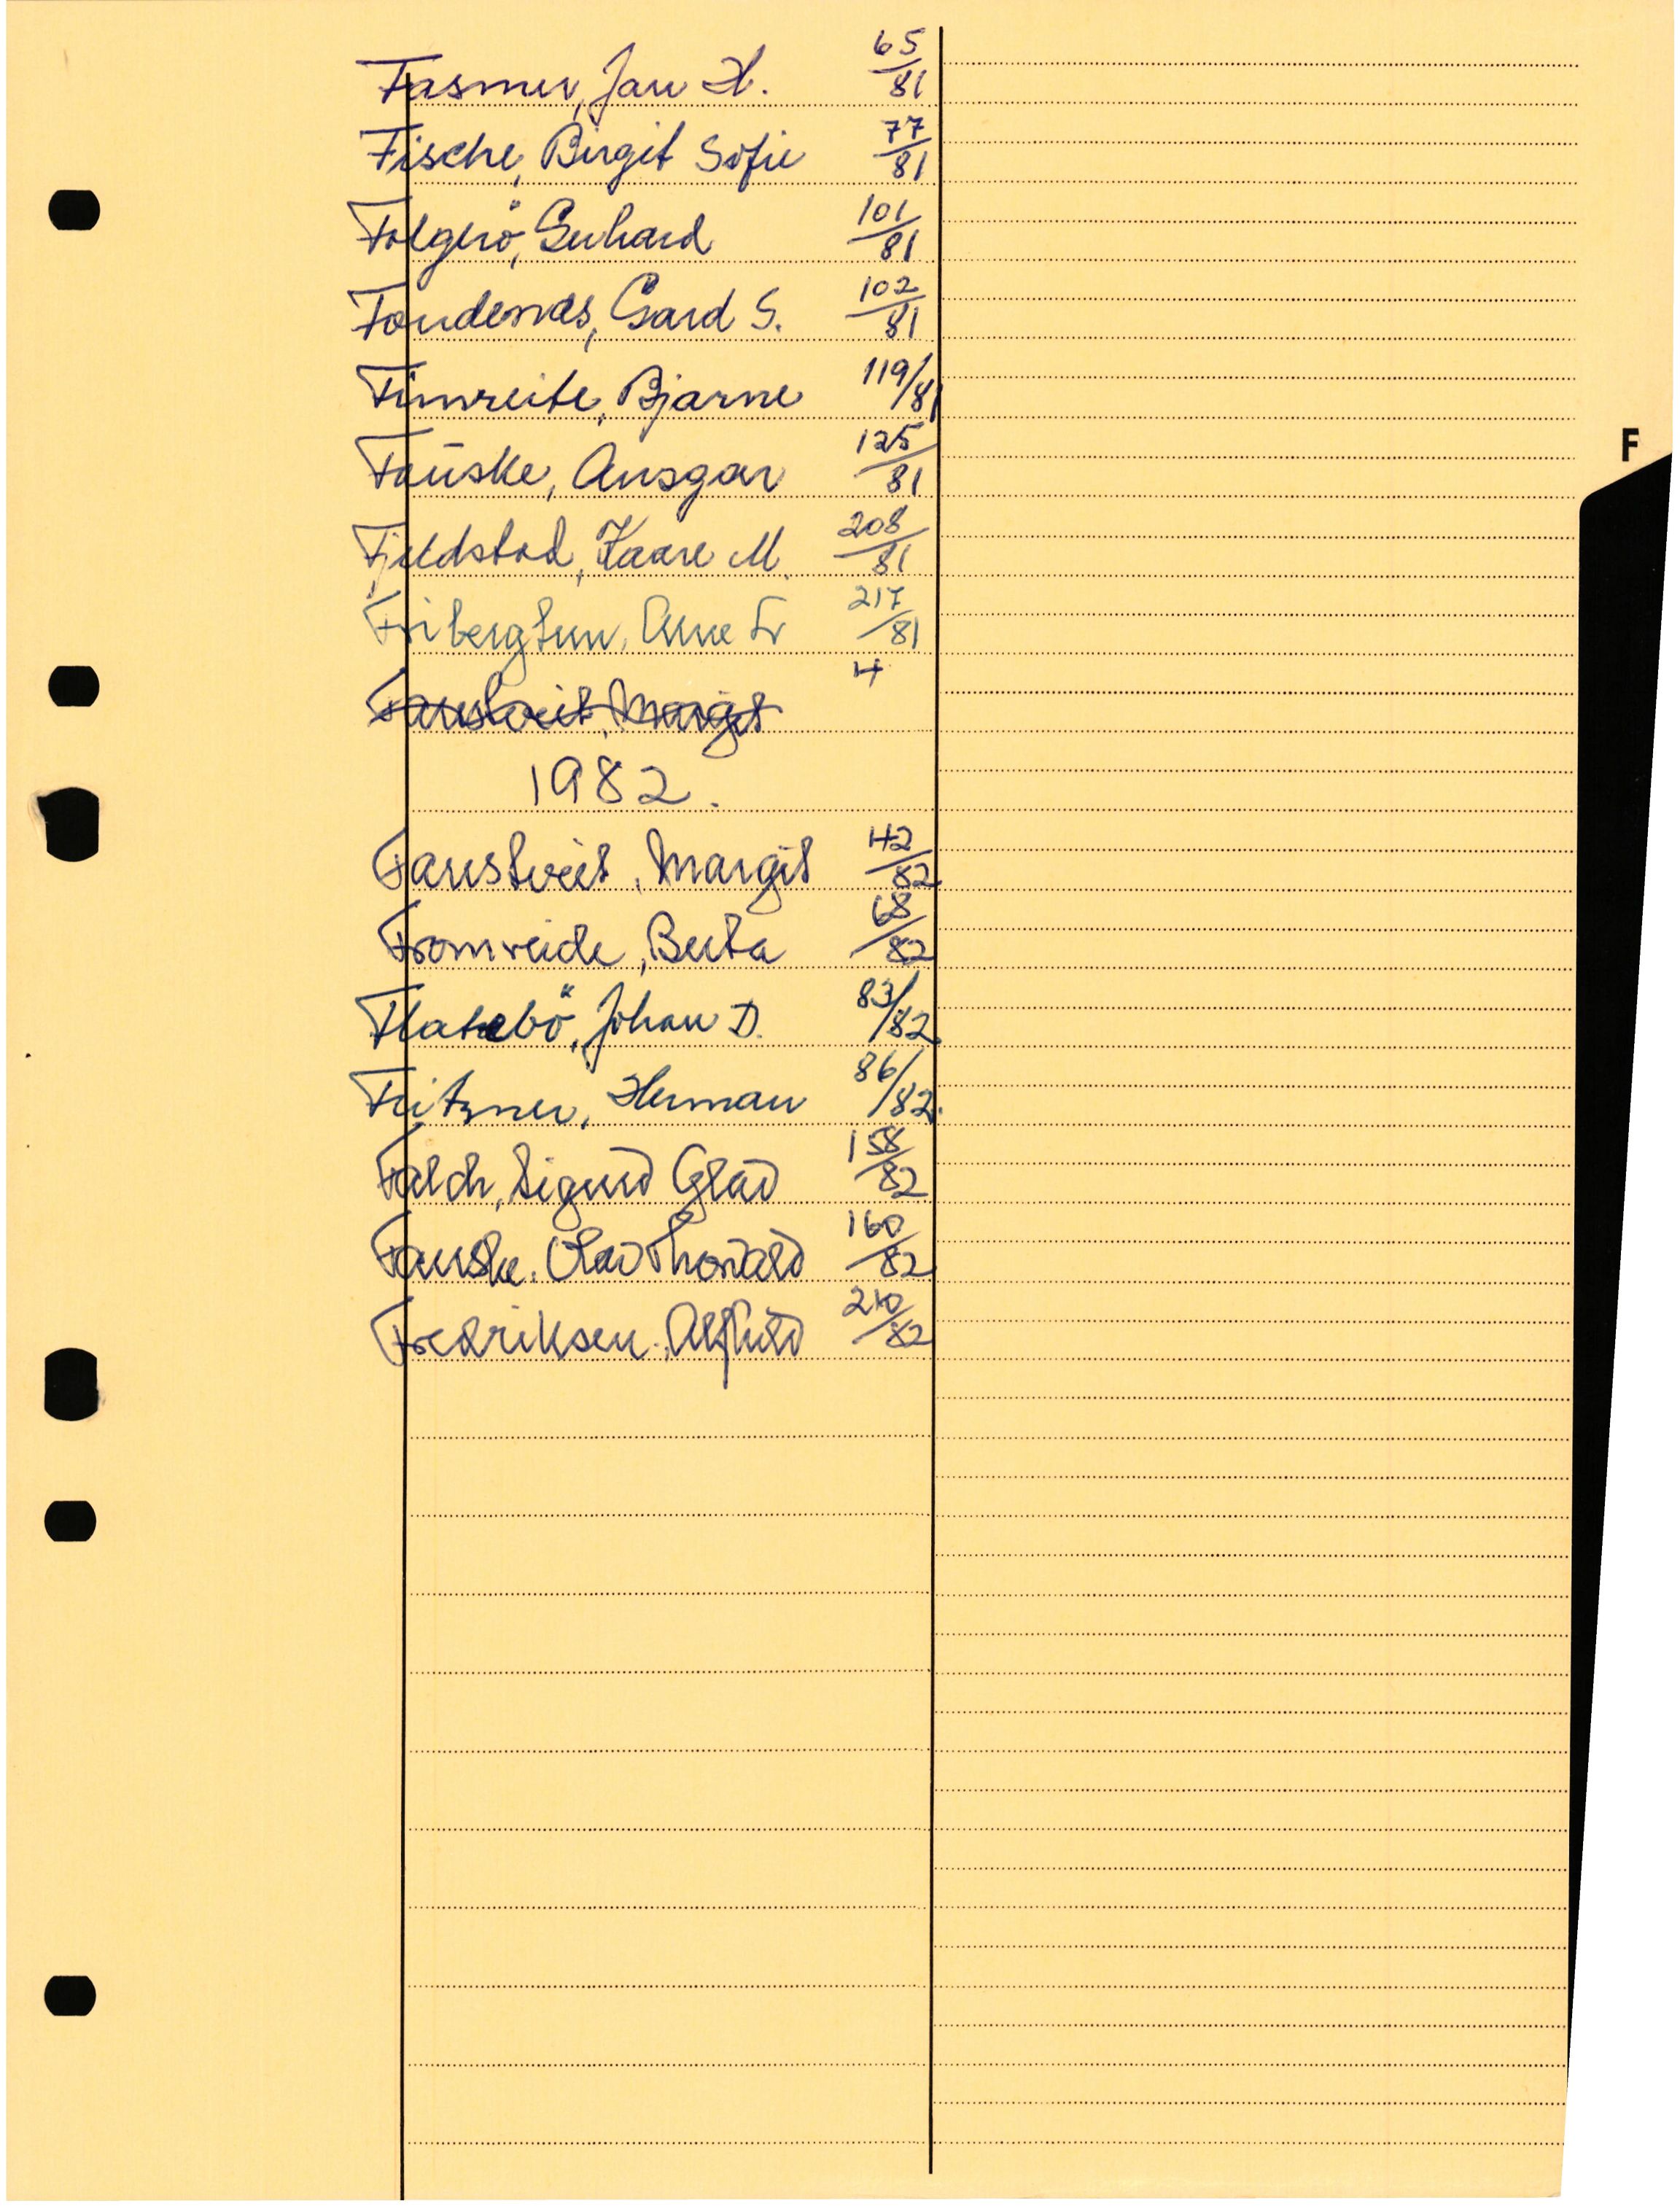 Fasmer, Jan H. 65/81
Fische, Birgit Sofie 77/81
Folgerö, Gerhard 101/81
Fondenæs, Gard S. 102/81
Fimreite, Bjarne 119/81
Fauske, Ansgar 125/81
Fjeldstad, Kaare M. 208/81
Fribergtun, Arne Fr 217/81
Farestveit, Margit 4
1982.
Farestveit, Margit 42/82
Fromreide, Berta 68/82
Flatebö, Johan D. 83/82
Fritzner, Herman 86/82.
Falch, Sigurd Glad 158/82
Fauske. Olav Thorvald 160/82
Fredriksen, Alfhild 210/82
F